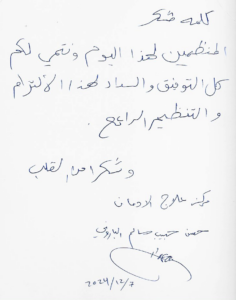 كلمة شكر
المنظمين لهذا اليوم ونتمنى لكم
كل التوفيق والسداد لهذا الالتزام
والتنظيم الرائع.
وشكرا من القلب
مركز علاج الادمان
حسن حبيب
2024/12/7